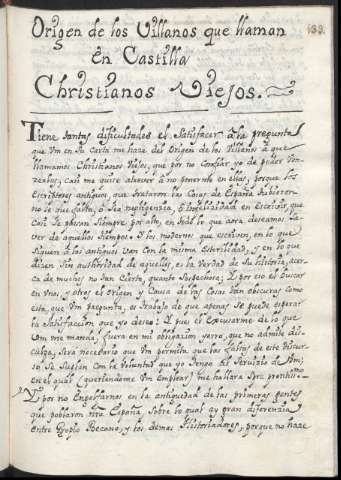 133.
Origen de los Villanos que llaman
en Castilla
Christianos Viejos.
Tiene tantas dificultades el satisfacer à la pregunta
que Vm en su Carta me haze del Origen de los Villanos à que
llamamos Christianos Viejos, que por no confiar yo de poder Ven-
zerlas, casi me quise atrever à no ponerme en ellas, porque los
Escriptores antiguos, que trataron las Cosas de España hubieron
no se que falta, ò sea negligencia, ò
casi se passan siempre por alto, en todo lo que aora deseamos sa-
ver de aquellos tiempos. Y los modernos que escriven, en lo que
siguen à los antiguos van Con la misma esterilidad, y en lo que
dizen Sin authoridad de aquellos, es la Verdad de su Historia, acer-
ca de muchos no tan Cierta, quanto Sospechosa; Y por eso el buscar
en Vnos y otros el Origen y Causa de las Cosas tan obscuras como
esta, que Vm pregunta, es trabajo de que apenas se puede esperar
la satisfaccion que yo deseo; Y pues el escusarme de lo que
Vm me manda, fuera en mi obligacion yerro, que no admite dis-
culpa, Sera necesario que Vm permita que las faltas de este discur-
so se suplan con la Voluntad que yo tengo del Servicio de Vm;
en el qual (queriendome Vm emplear) me hallara Spre promtiss.º
Y por no Engolfarnos en la antiguedad de las primeras gentes
que poblaron nra España sobre lo qual ay gran diferencia
Entre Goropio Becano, y los demas Historiadores, porque no haze